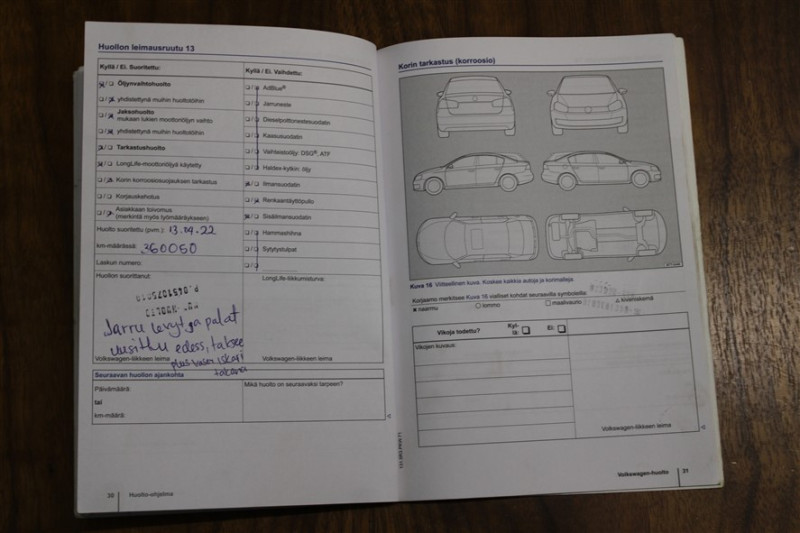 Huollon leimausruutu 13
Kyllä / Ei. Suoritettu:
Öljynvaihtohuolto
yhdistettynä muihin huoltotöihin
Jaksohuolto
mukaan lukien moottoriöljyn vaihto
yhdistettynä muihin huoltotöihin
Tarkastushuolto
LongLife-moottoriöljyä käytetty
Korin korroosiosuojauksen tarkastus
Korjauskehotus
Asiakkaan toivomus
(merkintä myös työmääräykseen)
Huolto suoritettu (pvm.): 13.04.22
km-määrässä: 360050
Laskun numero:
Huollon suorittanut:
Jarru levyt ja palat
uusittu edess, takse
plus vasen iskari
takana
Volkswagen-liikkeen leima
Kyllä / Ei. Vaihdettu:
AdBlue®
Jarruneste
Dieselpolttoainesuodatin
Kaasusuodatin
Vaihteistoöljy: DSG®, ATF
Haldex-kytkin: öljy
Ilmansuodatin
Renkaantäyttöpullo
Sisäilmansuodatin
Hammashihna
Sytytystulpat
LongLife-liikkumisturva:
Volkswagen-liikkeen leima
Seuraavan huollon ajankohta
Päivämäärä:
tai
km-määrä:
Mikä huolto on seuraavaksi tarpeen?
30 Huolto-ohjelma
Korin tarkastus (korroosio)
Kuva 16 Viitteellinen kuva. Koskee kaikkia autoja ja korimalleja.
Korjaamo merkitsee Kuva 16 vialliset kohdat seuraavilla symboleilla
naarmu lommo maalivaurio kiveniskemä
Vikoja todettu? Kyl-
lä: Ei:
Vikojen kuvaus:
Volkswagen-liikkeen leima
Volkswagen-huolto 31